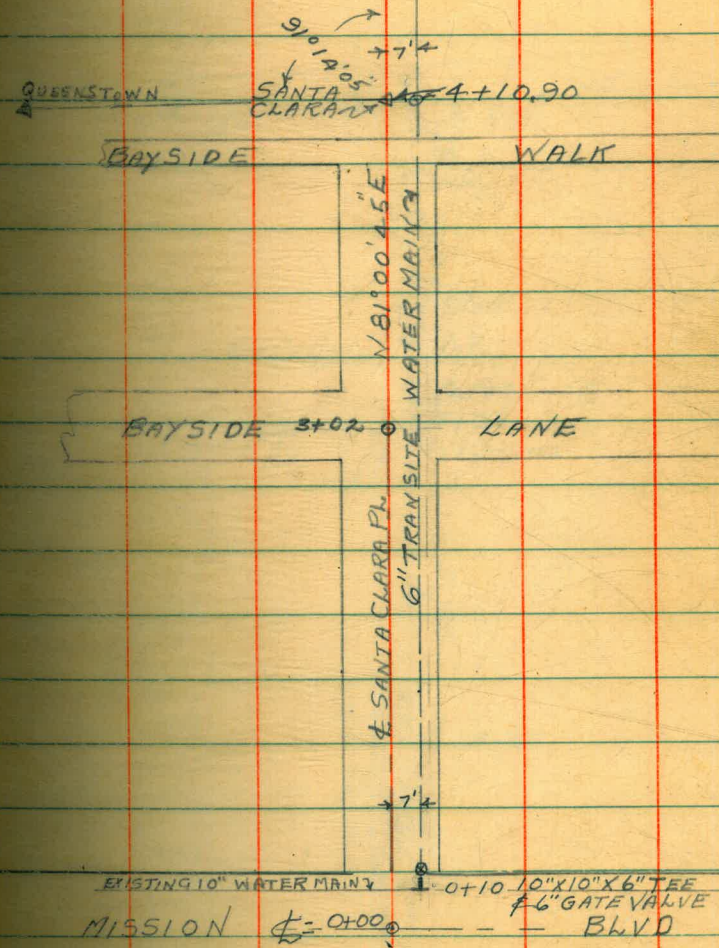 91°14'05"
7'
QUEENSTOWN
SANTA
CLARA
4+10.90
BAYSIDE WALK
N81°00'45"E
6" TRANSITE WATER MAIN
BAYSIDE 3+02 LANE
℄ SANTA CLARA PL
7'
EXISTING 10" WATER MAIN
0+10 10"X10"X6" TEE
& 6" GATE VALVE
MISSION ℄ = 0+00 BLVD